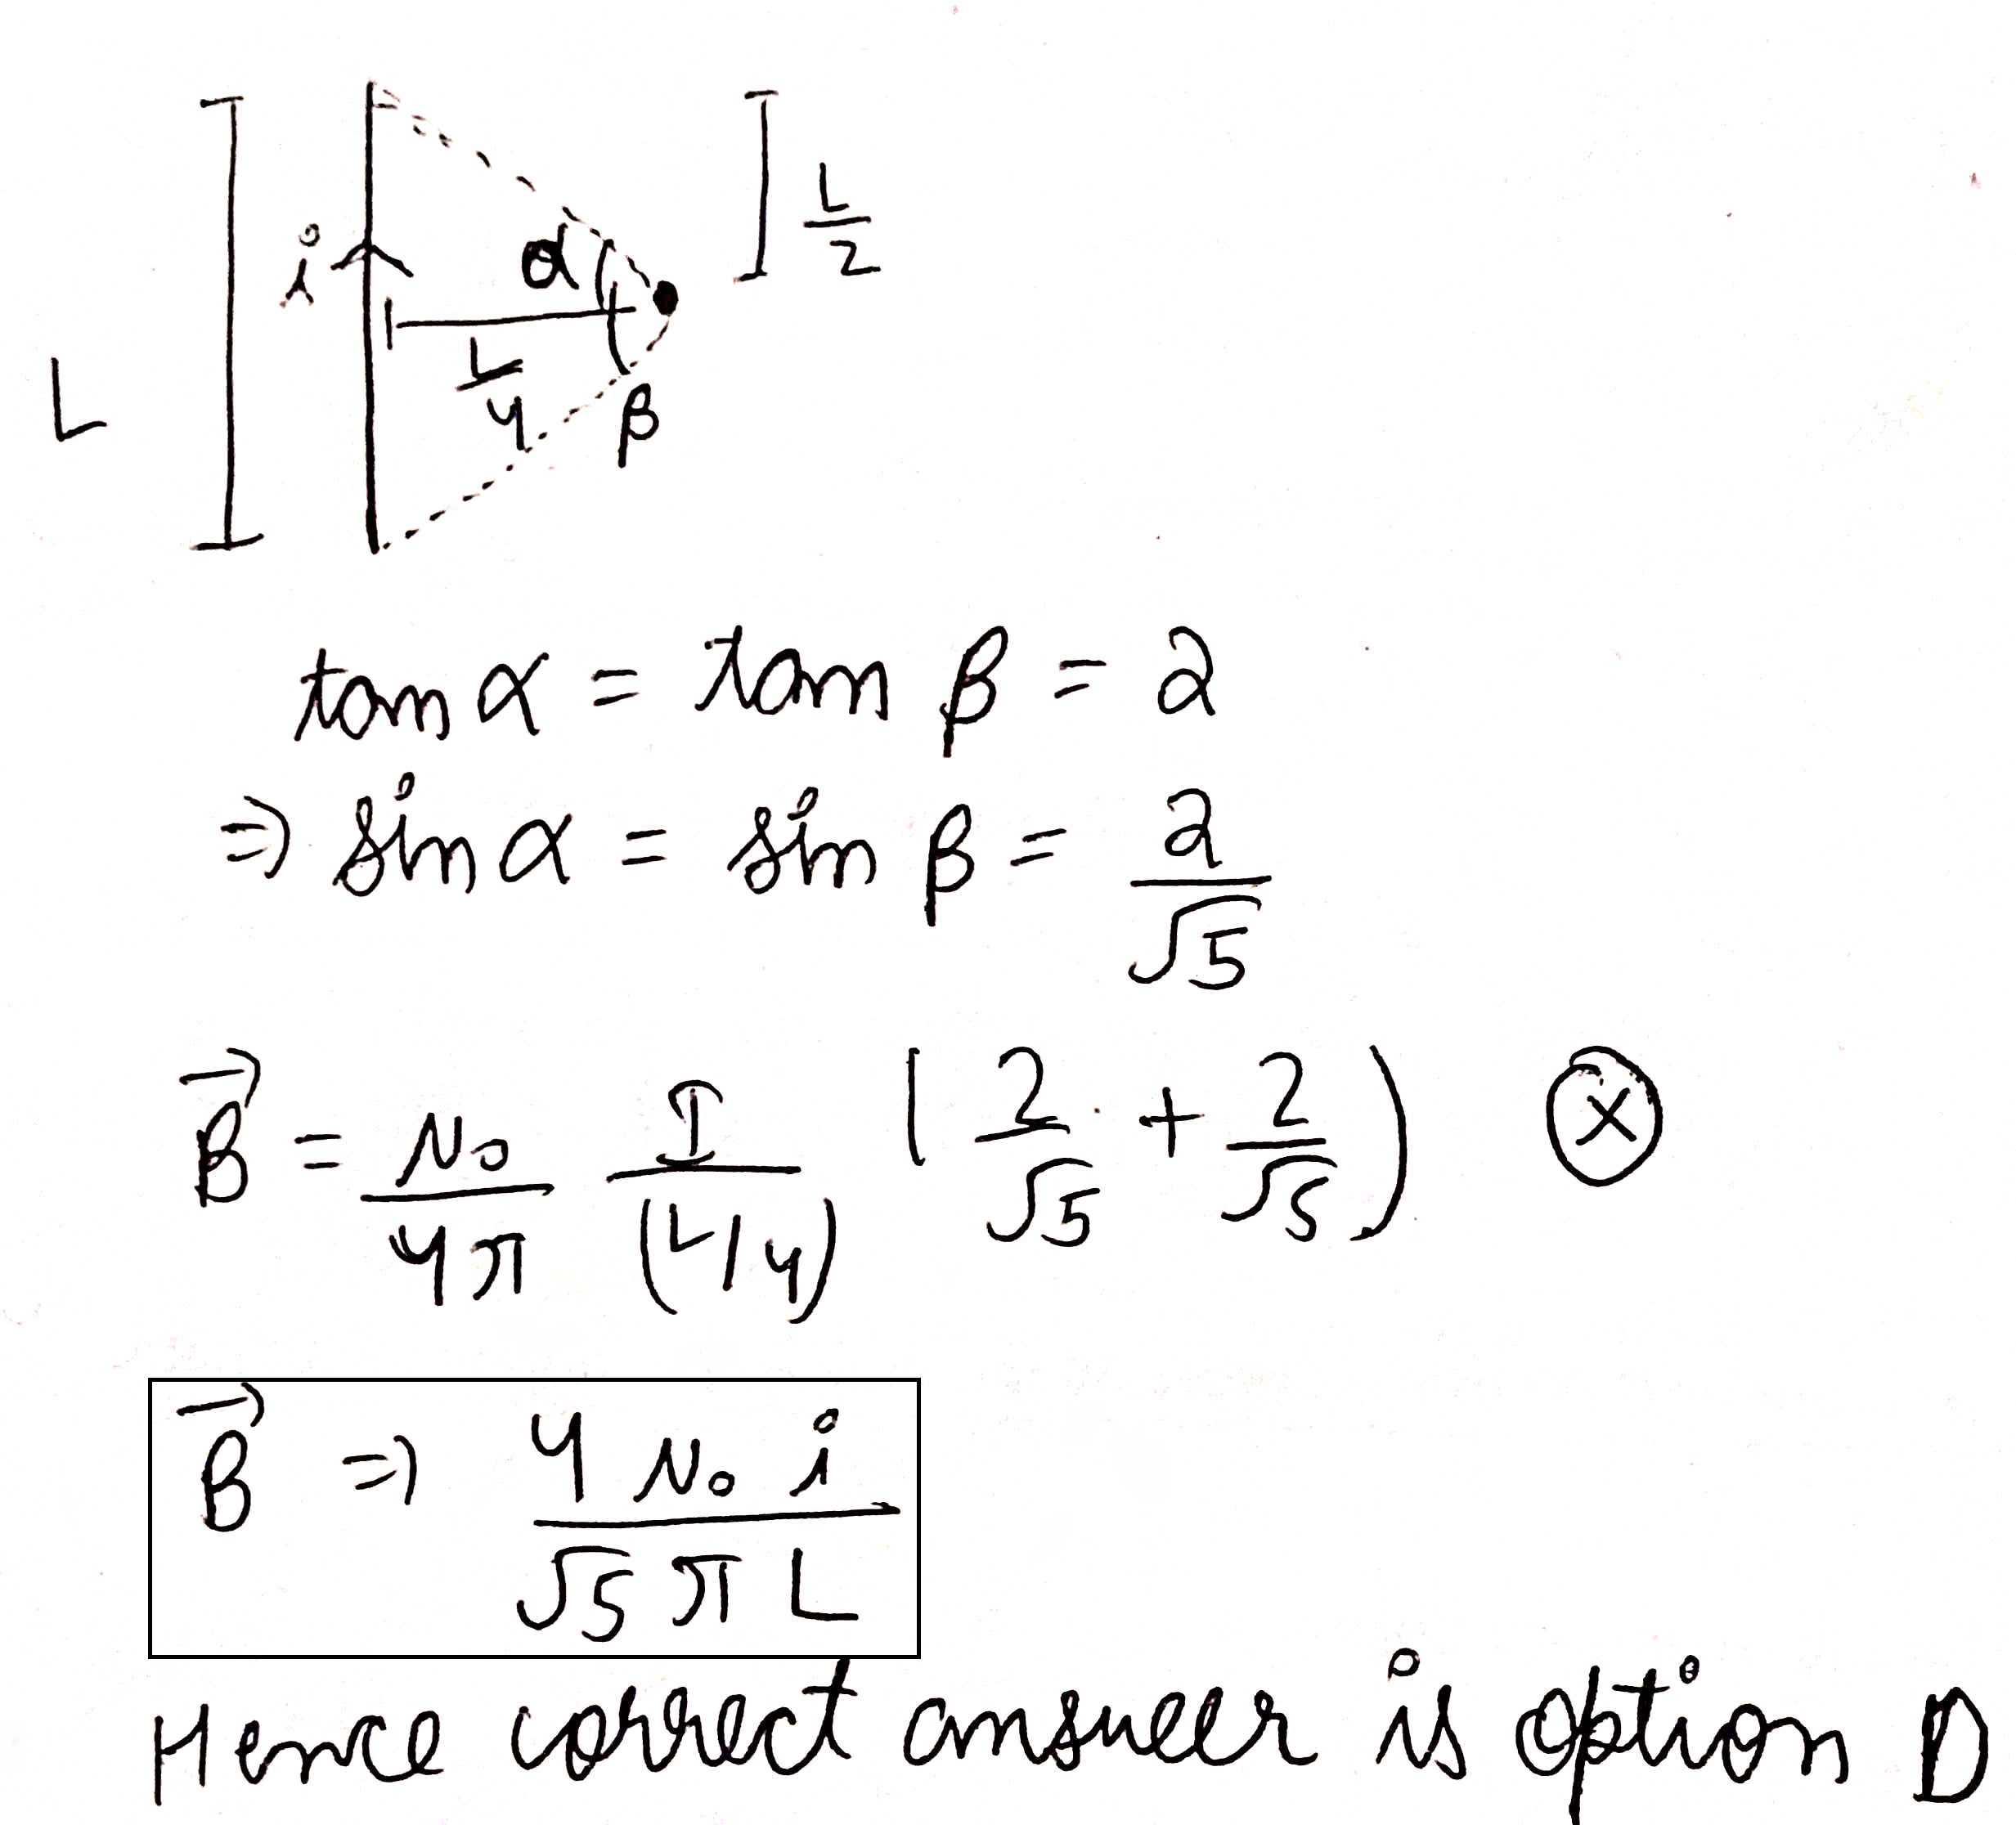 L
i
α
L/2
L/4
β
tan α = tan β = 2
⇒ sin α = sin β = 2/√5
B⃗ = μ₀/4π I/(L/4) (2/√5 + 2/√5) ⊗
B⃗ ⇒ 4 μ₀ i/√5 π L
Hence correct answer is option D